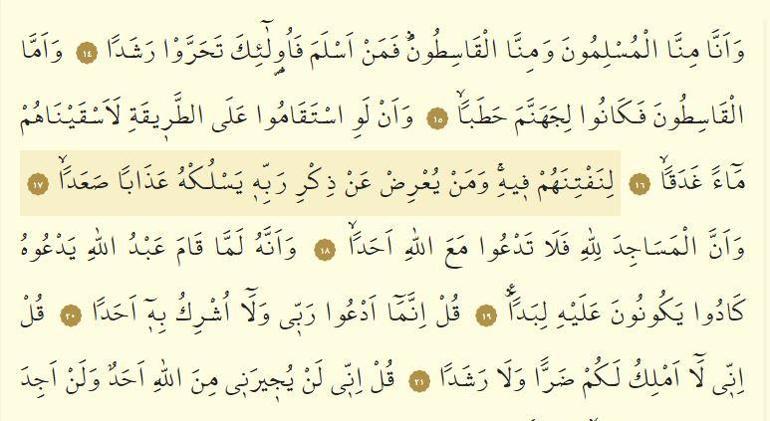 وَاَنَّا مِنَّا الْمُسْلِمُونَ وَمِنَّا الْقَاسِطُونَۜ فَمَنْ اَسْلَمَ فَاُو۬لٰٓئِكَ تَحَرَّوْا رَشَدًا ﴿١٤﴾ وَاَمَّا
الْقَاسِطُونَ فَكَانُوا لِجَهَنَّمَ حَطَبًاۙ ﴿١٥﴾ وَاَنْ لَوِ اسْتَقَامُوا عَلَى الطَّر۪يقَةِ لَاَسْقَيْنَاهُمْ
مَٓاءً غَدَقًاۙ ﴿١٦﴾ لِنَفْتِنَهُمْ ف۪يهِۜ وَمَنْ يُعْرِضْ عَنْ ذِكْرِ رَبِّه۪ يَسْلُكْهُ عَذَابًا صَعَدًاۙ ﴿١٧﴾
وَاَنَّ الْمَسَاجِدَ لِلّٰهِ فَلَا تَدْعُوا مَعَ اللّٰهِ اَحَدًاۙ ﴿١٨﴾ وَاَنَّهُ لَمَّا قَامَ عَبْدُ اللّٰهِ يَدْعُوهُ
كَادُوا يَكُونُونَ عَلَيْهِ لِبَدًاۜ۟ ﴿١٩﴾ قُلْ اِنَّمَٓا اَدْعُوا رَبّ۪ي وَلَٓا اُشْرِكُ بِه۪ٓ اَحَدًا ﴿٢٠﴾ قُلْ
اِنّ۪ي لَٓا اَمْلِكُ لَكُمْ ضَرًّا وَلَا رَشَدًا ﴿٢١﴾ قُلْ اِنّ۪ي لَنْ يُج۪يرَن۪ي مِنَ اللّٰهِ اَحَدٌ وَلَنْ اَجِدَ